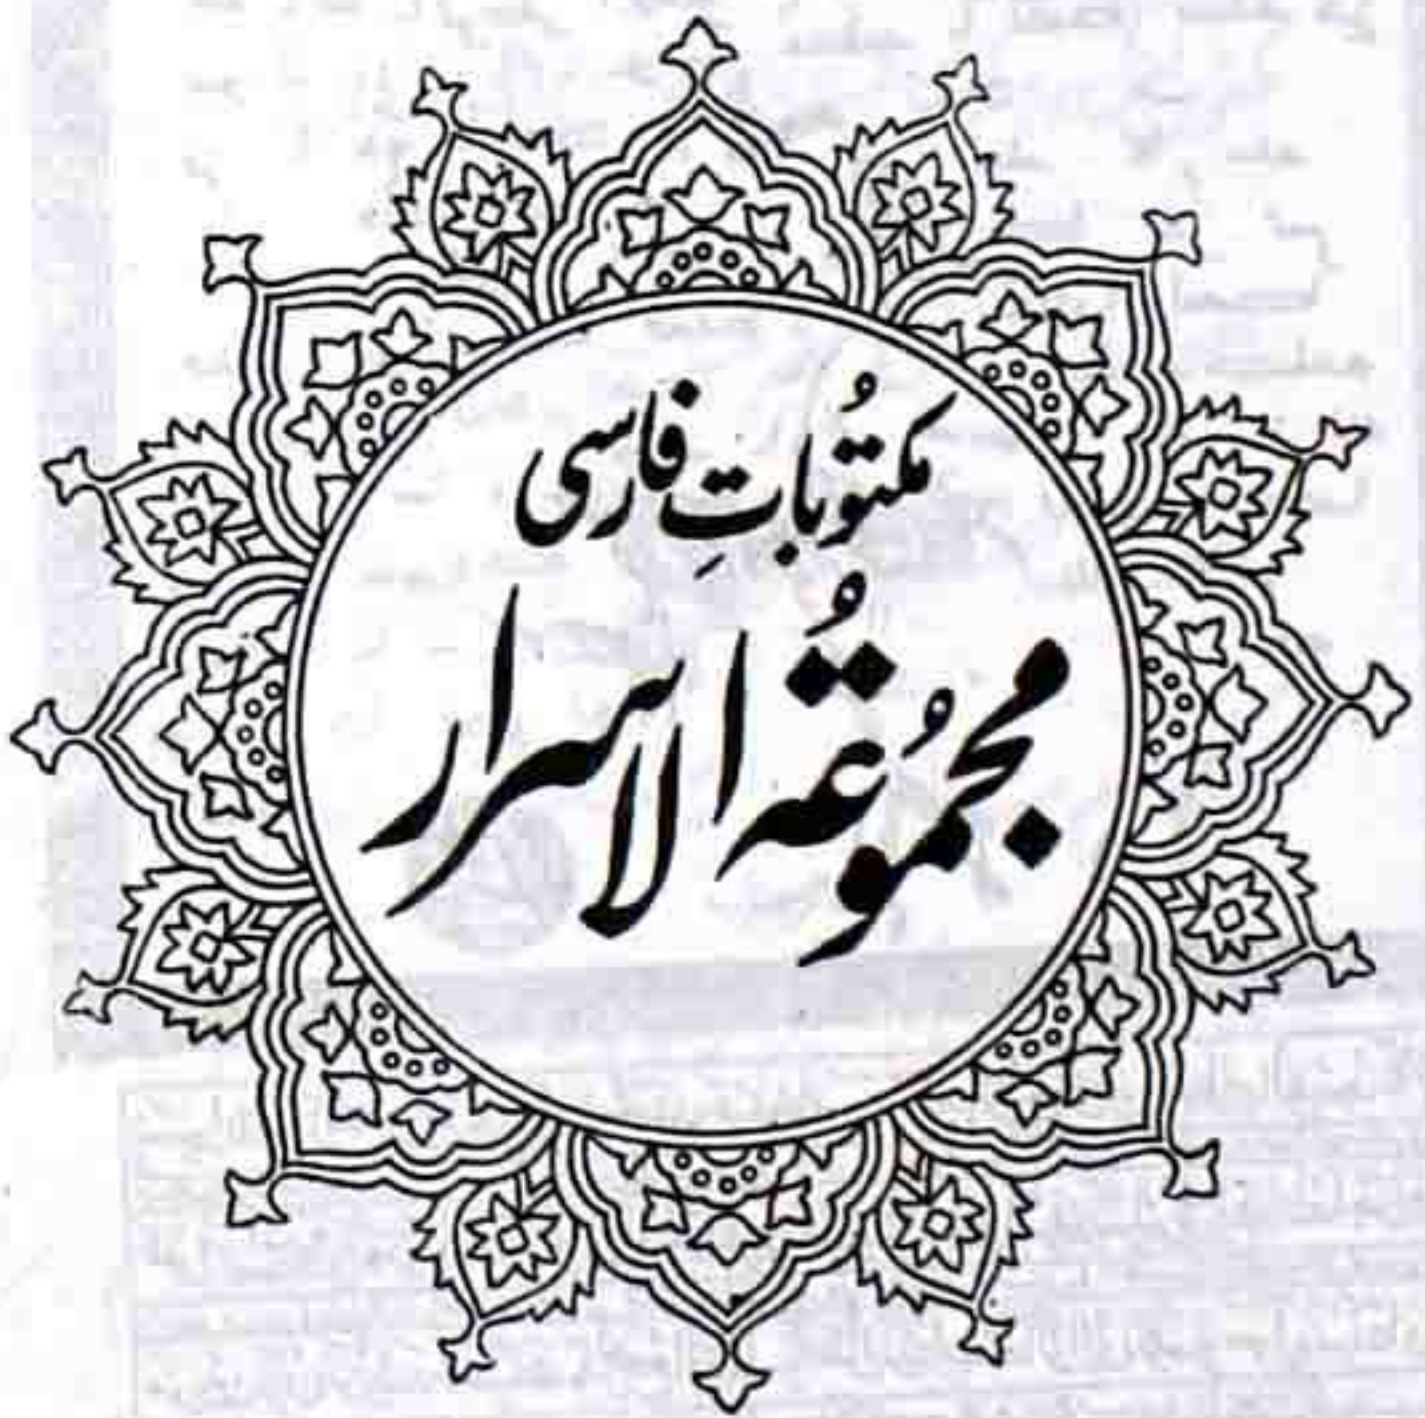 مکتوُباتِ فارسی
مجموُعۃُ الاسرار